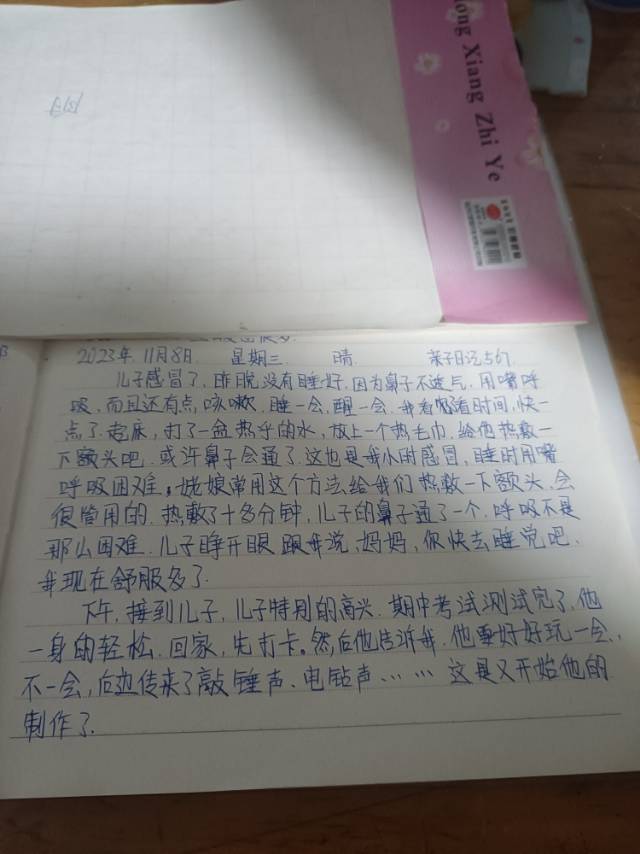 ong Xiang Zhi Ye
2023年 11月8日 星期三 晴 亲子日记567
儿子感冒了,昨晚没有睡好,因为鼻子不透气,用嘴呼
吸,而且还有点咳嗽.睡一会,醒一会.我看着时间,快一
点了.起床,打了一盆热乎的水,放上一个热毛巾.给他热敷一
下额头吧.或许鼻子会通了.这也是我小时感冒,睡时用嘴
呼吸困难。姥娘常用这个方法给我们热敷一下额头.会
很管用的.热敷了十多分钟,儿子的鼻子通了一个.呼吸不是
那么困难.儿子睁开眼跟我说,妈妈,你快去睡觉吧.
我现在舒服多了.
下午,接到儿子,儿子特别的高兴.期中考试测试完了,他
一身的轻松.回家,先打卡。然后他告诉我.他要好好玩一会,
不一会,后边传来了敲锤声、电钻声…… 这是又开始他的
制作了.